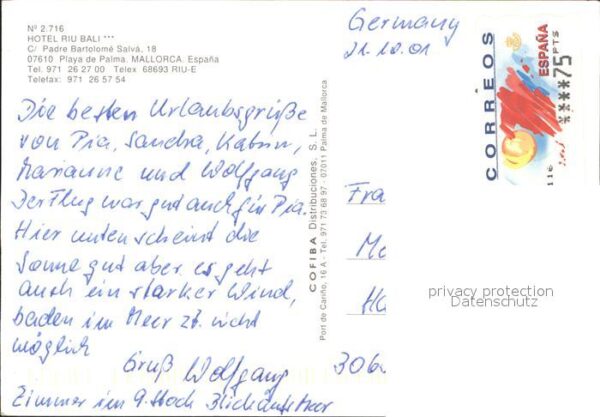 Nº 2.716
HOTEL RIU BALI ***
C/ Padre Bartolomé Salvá, 18
07610 Playa de Palma. MALLORCA. España
Tel. 971 26 27 00 Telex 68693 RIU-E
Telefax: 971 26 57 54
Die besten Urlaubsgrüße
von Pia, Sandra, Katrin,
Marianne und Wolfgang
Der Flug war gut auch für Pia.
Hier unten scheint die
Sonne gut aber es geht
auch ein starker Wind,
baden im Meer zt. nicht
möglich
Gruß Wolfgang
Zimmer im 9. Stock Blick aufs Meer
COFIBA Distribuciones, S. L.
Port de Cariño, 16 A - Tel. 971 73 68 97 - 07011 Palma de Mallorca
Germany
21.10.01
CORREOS
ESPAÑA
***75
PTS
116
Fra
Ma
Ha
306
privacy protection
Datenschutz